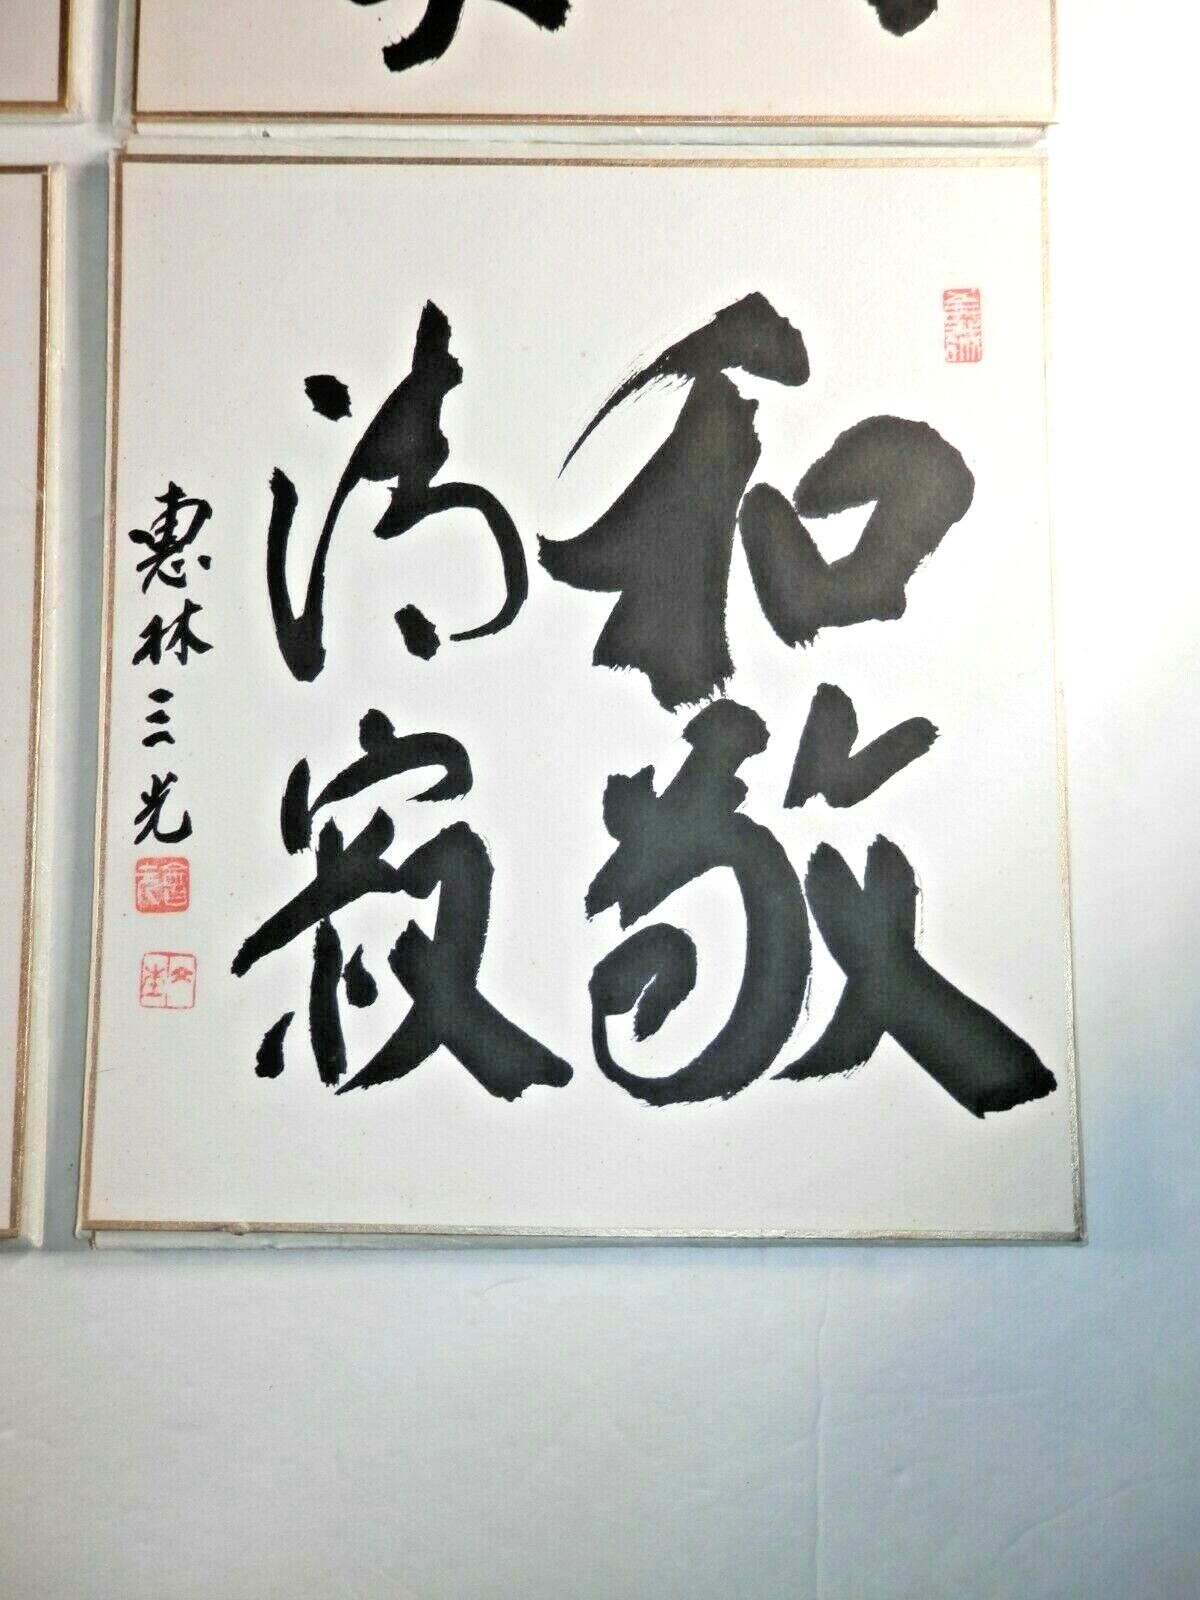 和敬
清寂
惠林三光